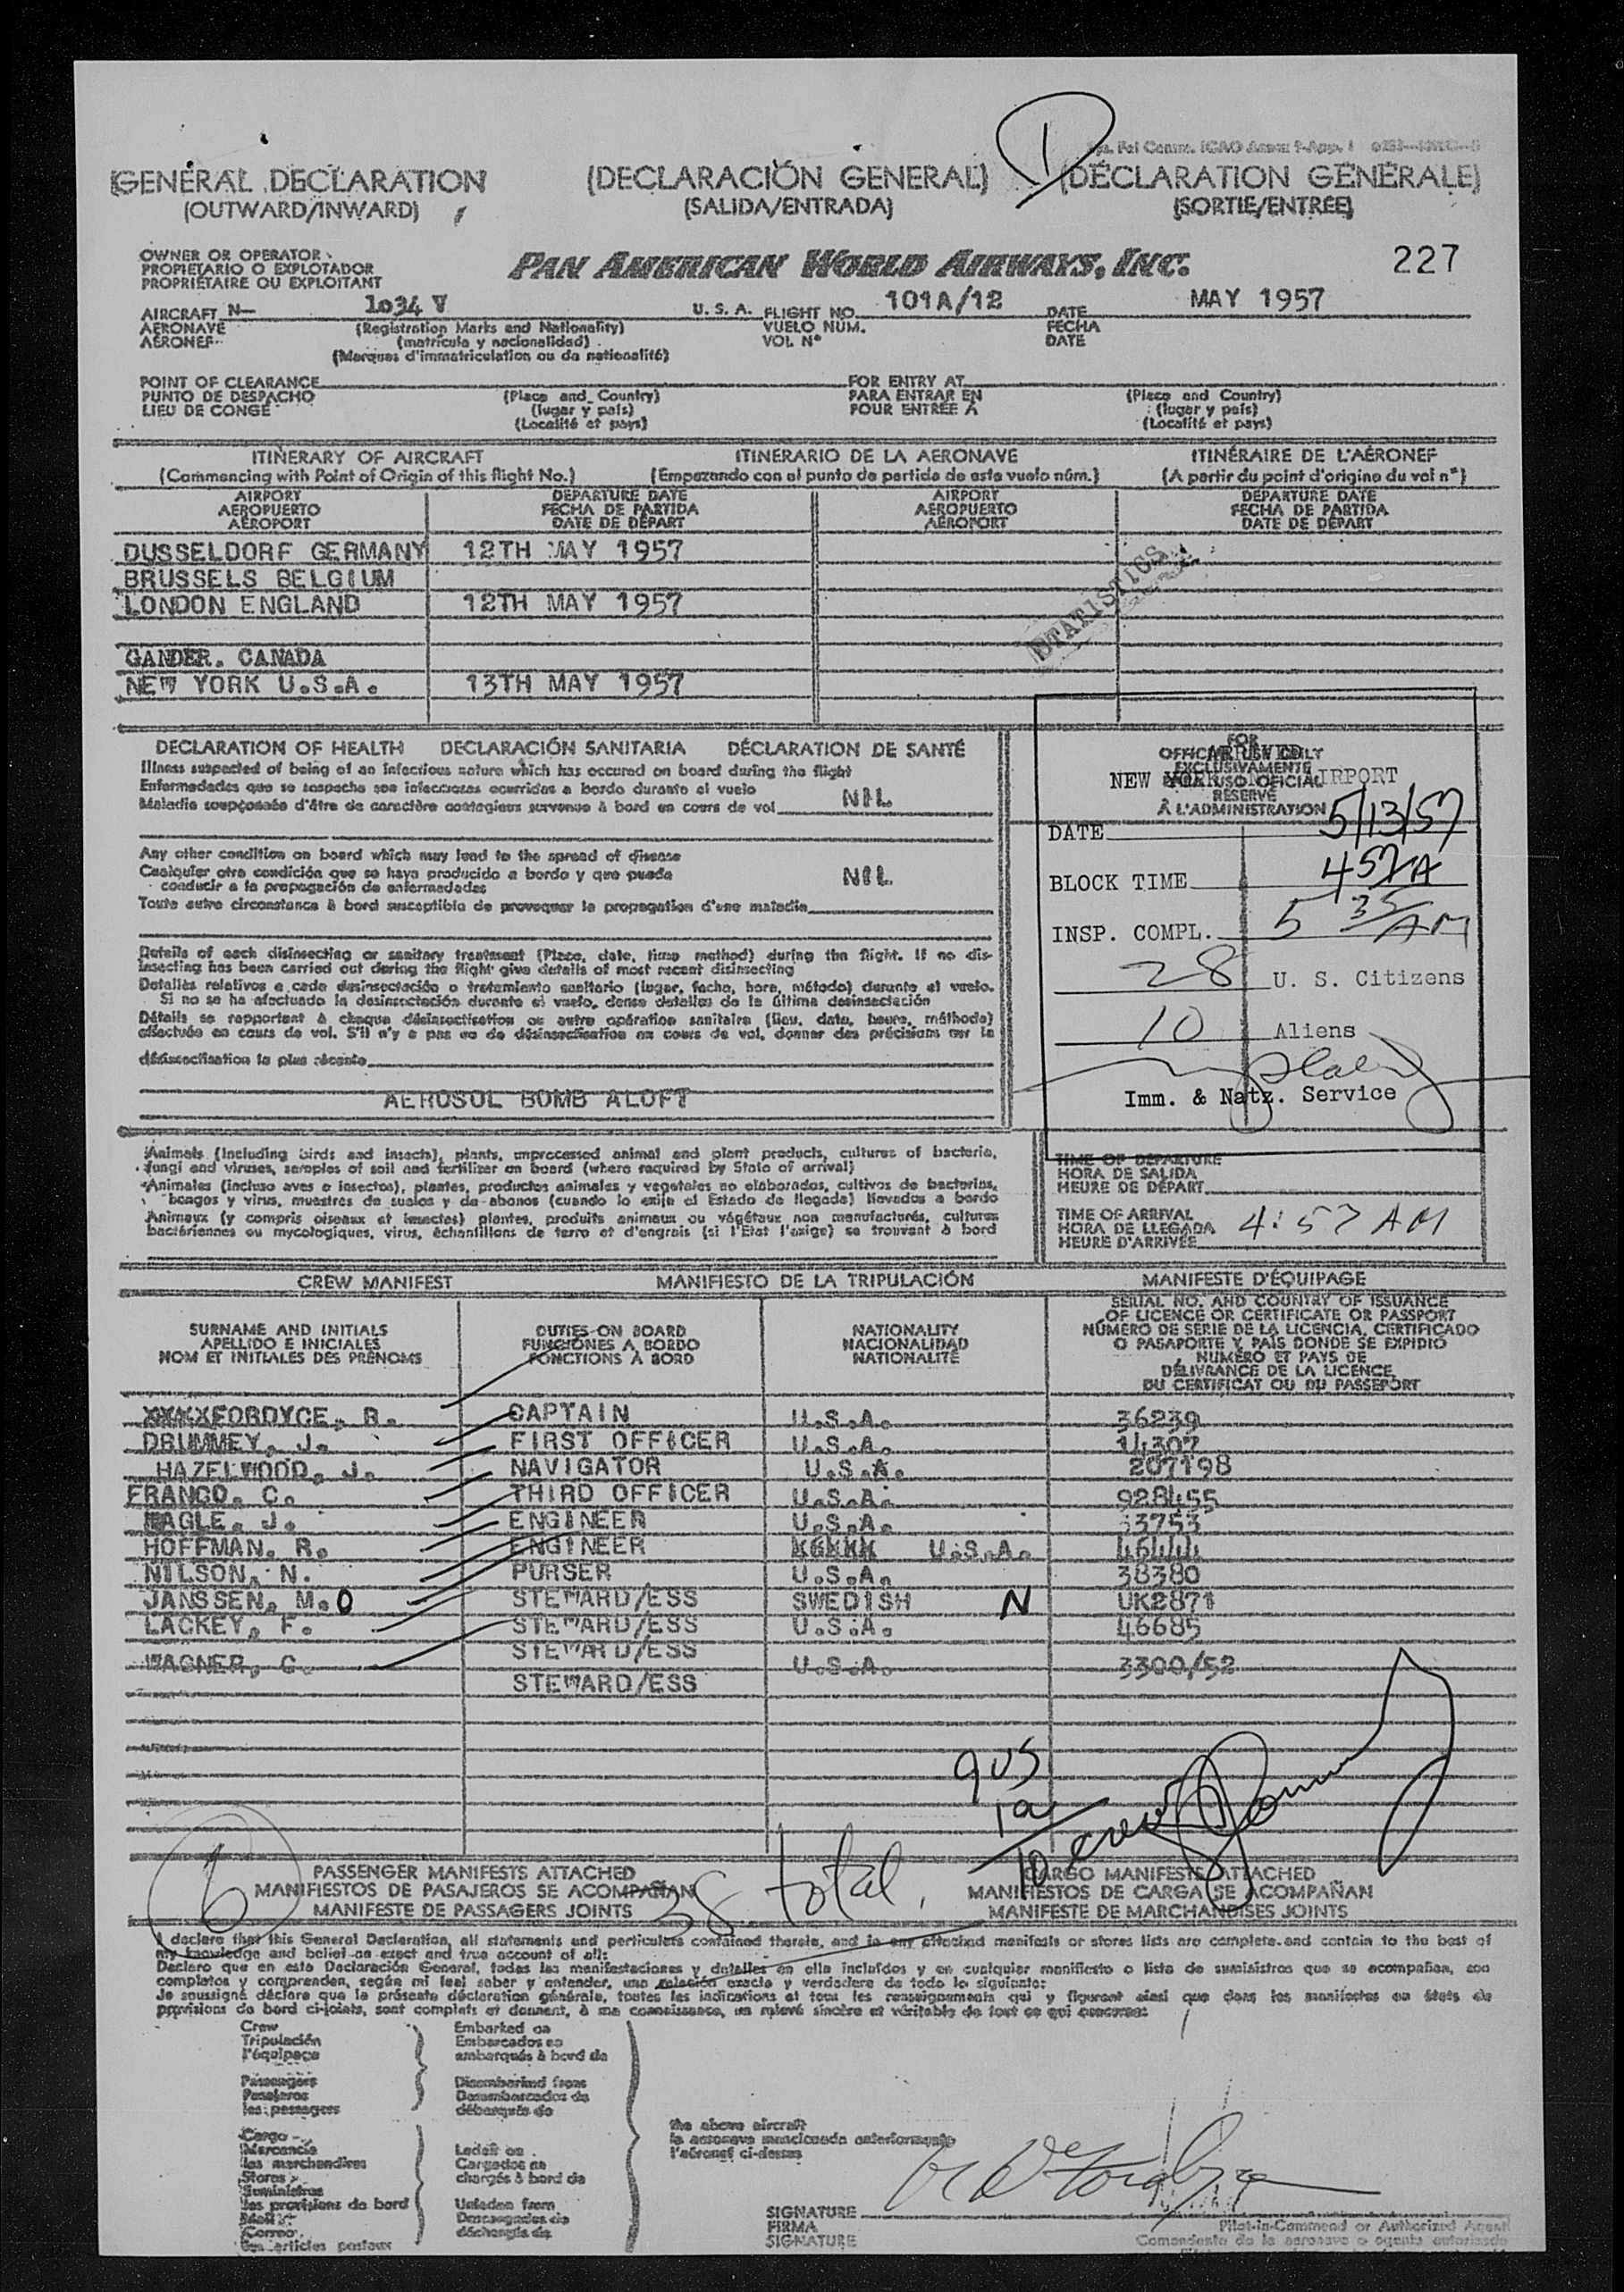 GENERAL DECLARATION
(OUTWARD/INWARD)
(DECLARACIÓN GENERAL)
(SALIDA/ENTRADA)
(DÉCLARATION GÉNÉRALE)
(SORTIE/ENTRÉE)
OWNER OR OPERATOR
PROPIETARIO O EXPLOTADOR
PROPRIÉTAIRE OU EXPLOITANT
PAN AMERICAN WORLD AIRWAYS, INC.
227
AIRCRAFT N— 1034 V U. S. A. FLIGHT NO. 101A/12 DATE MAY 1957
AERONAVE (Registration Marks and Nationality) VUELO NÚM. FECHA
AÉRONEF (matrícula y nacionalidad) VOL N° DATE
(Marques d'immatriculation ou de nationalité)
POINT OF CLEARANCE FOR ENTRY AT
PUNTO DE DESPACHO (Place and Country) PARA ENTRAR EN (Place and Country)
LIEU DE CONGÉ (lugar y país) POUR ENTRÉE À (lugar y país)
(Localité et pays) (Localité et pays)
ITINERARY OF AIRCRAFT ITINERARIO DE LA AERONAVE ITINÉRAIRE DE L'AÉRONEF
(Commencing with Point of Origin of this flight No.) (Empezando con el punto de partida de este vuelo núm.) (A partir du point d'origine du vol n°)
AIRPORT DEPARTURE DATE AIRPORT DEPARTURE DATE
AEROPUERTO FECHA DE PARTIDA AEROPUERTO FECHA DE PARTIDA
AÉROPORT DATE DE DÉPART AÉROPORT DATE DE DÉPART
DUSSELDORF GERMANY 12TH MAY 1957
BRUSSELS BELGIUM
LONDON ENGLAND 12TH MAY 1957
STATISTICS
GANDER. CANADA
NEW YORK U.S.A. 13TH MAY 1957
DECLARATION OF HEALTH DECLARACIÓN SANITARIA DÉCLARATION DE SANTÉ
Illness suspected of being of an infectious nature which has occured on board during the flight
Enfermedades que se sospecha son infecciosas ocurridas a bordo durante el vuelo
Maladie soupçonnée d'être de caractère contagieux survenue à bord en cours de vol NIL
Any other condition on board which may lead to the spread of disease
Cualquier otra condición que se haya producido a bordo y que pueda
conducir a la propagación de enfermedades NIL
Toute autre circonstance à bord susceptible de provoquer la propagation d'une maladie
Details of each disinsecting or sanitary treatment (Place, date, time method) during the flight. If no dis-
insecting has been carried out during the flight give details of most recent disinsecting
Detalles relativos a cada desinsectación o tratamiento sanitario (lugar, fecha, hora, método) durante el vuelo.
Si no se ha efectuado la desinsectación durante el vuelo, dense detalles de la última desinsectación
Détails se rapportant à chaque désinsectisation ou autre opération sanitaire (lieu, date, heure, méthode)
effectuée en cours de vol. S'il n'y a pas eu de désinsectisation en cours de vol, donner des précisions sur la
désinsectisation la plus récente
AEROSOL BOMB ALOFT
FOR
OFFICIAL USE ONLY
ARRIVED
EXCLUSIVAMENTE
NEW YORK AIRPORT
PARA USO OFICIAL
RÉSERVÉ
À L'ADMINISTRATION
DATE 5/13/57
BLOCK TIME 457A
INSP. COMPL. 5 35 AM
28 U. S. Citizens
10 Aliens
Imm. & Natz. Service
Animals (including birds and insects), plants, unprocessed animal and plant products, cultures of bacteria,
fungi and viruses, samples of soil and fertilizer on board (where required by State of arrival)
Animales (incluso aves o insectos), plantas, productos animales y vegetales no elaborados, cultivos de bacterias,
hongos y virus, muestras de suelos y de abonos (cuando lo exija el Estado de llegada) llevados a bordo
Animaux (y compris oiseaux et insectes) plantes, produits animaux ou végétaux non manufacturés, cultures
bactériennes ou mycologiques, virus, échantillons de terre et d'engrais (si l'Etat l'exige) se trouvant à bord
TIME OF DEPARTURE
HORA DE SALIDA
HEURE DE DÉPART
TIME OF ARRIVAL
HORA DE LLEGADA 4:57 AM
HEURE D'ARRIVÉE
CREW MANIFEST MANIFIESTO DE LA TRIPULACIÓN MANIFESTE D'ÉQUIPAGE
SURNAME AND INITIALS
APELLIDO E INICIALES
NOM ET INITIALES DES PRÉNOMS
DUTIES ON BOARD
FUNCIONES A BORDO
FONCTIONS À BORD
NATIONALITY
NACIONALIDAD
NATIONALITÉ
SERIAL NO. AND COUNTRY OF ISSUANCE
OF LICENCE OR CERTIFICATE OR PASSPORT
NÚMERO DE SERIE DE LA LICENCIA, CERTIFICADO
O PASAPORTE Y PAÍS DONDE SE EXPIDIÓ
NUMÉRO ET PAYS DE
DÉLIVRANCE DE LA LICENCE,
DU CERTIFICAT OU DU PASSEPORT
XXXXFORDYCE, R. CAPTAIN U.S.A. 36239
DRUMMEY, J. FIRST OFFICER U.S.A. 14307
HAZELWOOD, J. NAVIGATOR U.S.A. 207198
FRANCO. C. THIRD OFFICER U.S.A. 928455
NAGLE. J. ENGINEER U.S.A. 33753
HOFFMAN. R. ENGINEER U.S.A. 46444
NILSON, N. PURSER U.S.A. 38380
JANSSEN, M.O STEWARD/ESS SWEDISH N UK2871
LACKEY, F. STEWARD/ESS U.S.A. 46685
STEWARD/ESS
WAGNER, C. U.S.A. 3300/52
STEWARD/ESS
9 US
1a
10 crew
PASSENGER MANIFESTS ATTACHED
MANIFIESTOS DE PASAJEROS SE ACOMPAÑAN
MANIFESTE DE PASSAGERS JOINTS
38 total.
CARGO MANIFESTS ATTACHED
MANIFIESTOS DE CARGA SE ACOMPAÑAN
MANIFESTE DE MARCHANDISES JOINTS
I declare that this General Declaration, all statements and particulars contained therein, and in any attached manifests or stores lists are complete and contain to the best of
my knowledge and belief an exact and true account of all:
Declaro que en esta Declaración General, todas las manifestaciones y detalles en ella incluídos y en cualquier manifiesto o lista de suministros que se acompañan, son
completos y comprenden, según mi leal saber y entender, una relación exacta y verdadera de todo lo siguiente:
Je soussigné déclare que la présente déclaration générale, toutes les indications et tous les renseignements qui y figurent ainsi que dans les manifestes ou états de
provisions de bord ci-joints, sont complets et donnent, à ma connaissance, un relevé sincère et véritable de tout ce qui concerne:
Crew
Tripulación
l'équipage
Passengers
Pasajeros
les passagers
Embarked on
Embarcados en
embarqués à bord de
Disembarked from
Desembarcados de
débarqués de
Cargo
Mercancía
les marchandises
Stores
Suministros
les provisions de bord
Mail
Correo
les articles postaux
Laden on
Cargados en
chargés à bord de
Unladen from
Descargados de
déchargés de
the above aircraft
la aeronave mencionada anteriormente
l'aéronef ci-dessus
SIGNATURE
FIRMA
SIGNATURE
Pilot-in-Command or Authorized Agent
Comandante de la aeronave o agente autorizado